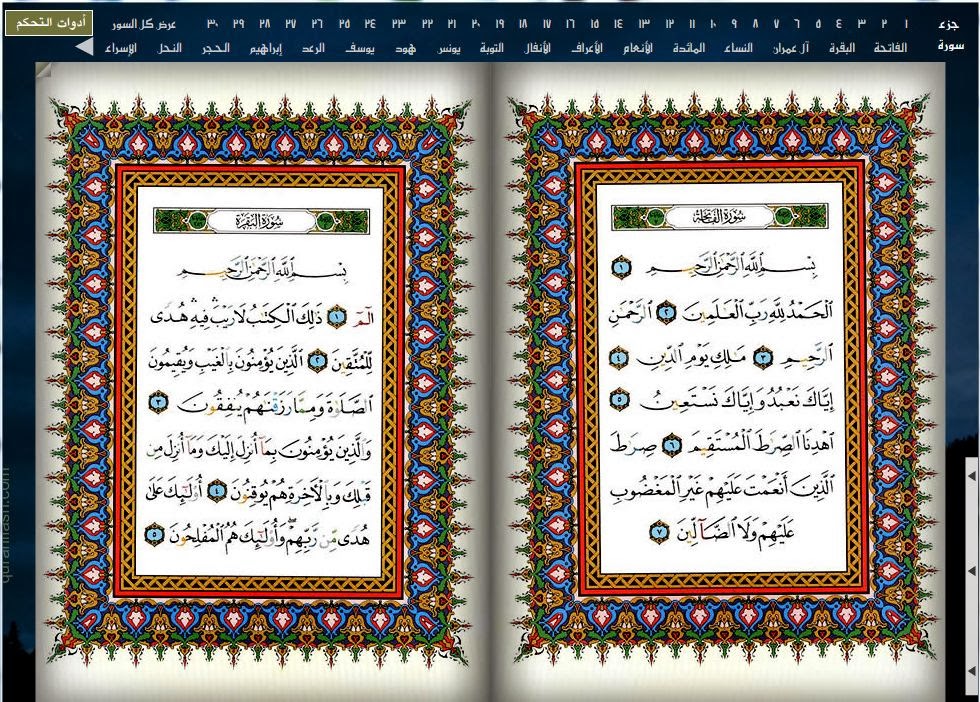 جزء ١ ٢ ٣ ٤ ٥ ٦ ٧ ٨ ٩ ١٠ ١١ ١٢ ١٣ ١٤ ١٥ ١٦ ١٧ ١٨ ١٩ ٢٠ ٢١ ٢٢ ٢٣ ٢٤ ٢٥ ٢٦ ٢٧ ٢٨ ٢٩ ٣٠ عرض كل السور
أدوات التحكم
سورة الفاتحة البقرة آل عمران النساء المائدة الأنعام الأعراف الأنفال التوبة يونس هود يوسف الرعد إبراهيم الحجر النحل الإسراء
سُورَةُ الفَاتِحَةِ
بِسْمِ ٱللَّهِ ٱلرَّحْمَٰنِ ٱلرَّحِيمِ ١
ٱلْحَمْدُ لِلَّهِ رَبِّ ٱلْعَٰلَمِينَ ٢ ٱلرَّحْمَٰنِ
ٱلرَّحِيمِ ٣ مَٰلِكِ يَوْمِ ٱلدِّينِ ٤
إِيَّاكَ نَعْبُدُ وَإِيَّاكَ نَسْتَعِينُ ٥
ٱهْدِنَا ٱلصِّرَٰطَ ٱلْمُسْتَقِيمَ ٦ صِرَٰطَ
ٱلَّذِينَ أَنْعَمْتَ عَلَيْهِمْ غَيْرِ ٱلْمَغْضُوبِ
عَلَيْهِمْ وَلَا ٱلضَّآلِّينَ ٧
سُورَةُ البَقَرَةِ
بِسْمِ ٱللَّهِ ٱلرَّحْمَٰنِ ٱلرَّحِيمِ
الٓمٓ ١ ذَٰلِكَ ٱلْكِتَٰبُ لَا رَيْبَۛ فِيهِۛ هُدًى
لِّلْمُتَّقِينَ ٢ ٱلَّذِينَ يُؤْمِنُونَ بِٱلْغَيْبِ وَيُقِيمُونَ
ٱلصَّلَوٰةَ وَمِمَّا رَزَقْنَٰهُمْ يُنفِقُونَ ٣
وَٱلَّذِينَ يُؤْمِنُونَ بِمَآ أُنزِلَ إِلَيْكَ وَمَآ أُنزِلَ مِن
قَبْلِكَ وَبِٱلْأَخِرَةِ هُمْ يُوقِنُونَ ٤ أُو۟لَٰٓئِكَ عَلَىٰ
هُدًى مِّن رَّبِّهِمْۖ وَأُو۟لَٰٓئِكَ هُمُ ٱلْمُفْلِحُونَ ٥
quranflash.com